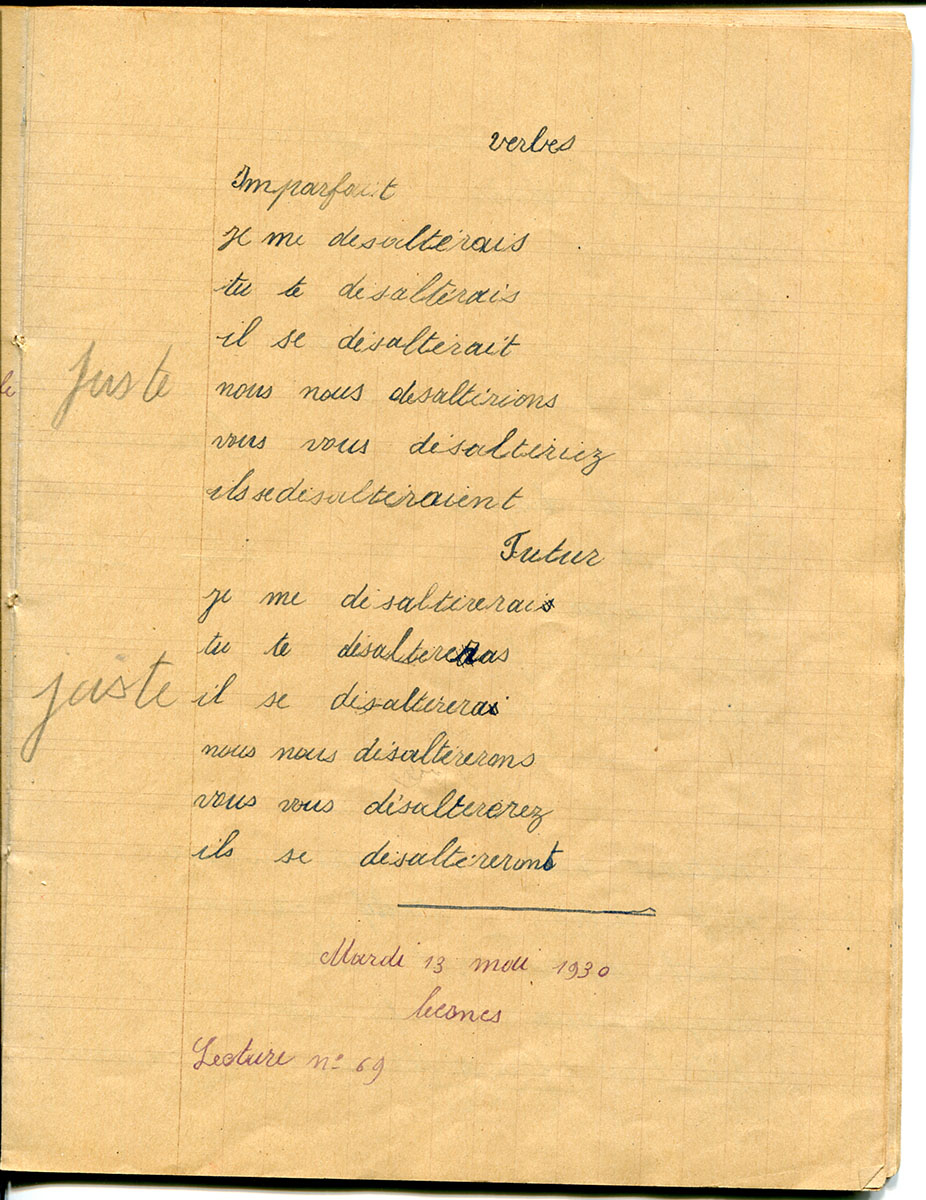 verbes
Imparfait
je me désaltérais
tu te désaltérais
il se désaltérait
juste
nous nous désaltérions
vous vous désaltériez
ils se désaltéraient
Futur
je me désaltérerais
tu te désaltéreras
juste
il se désaltérerai
nous nous désaltérerons
vous vous désaltérerez
ils se désaltéreront
Mardi 13 mai 1930
lecons
Lecture n° 69